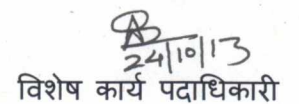 24/10/13
विशेष कार्य पदाधिकारी